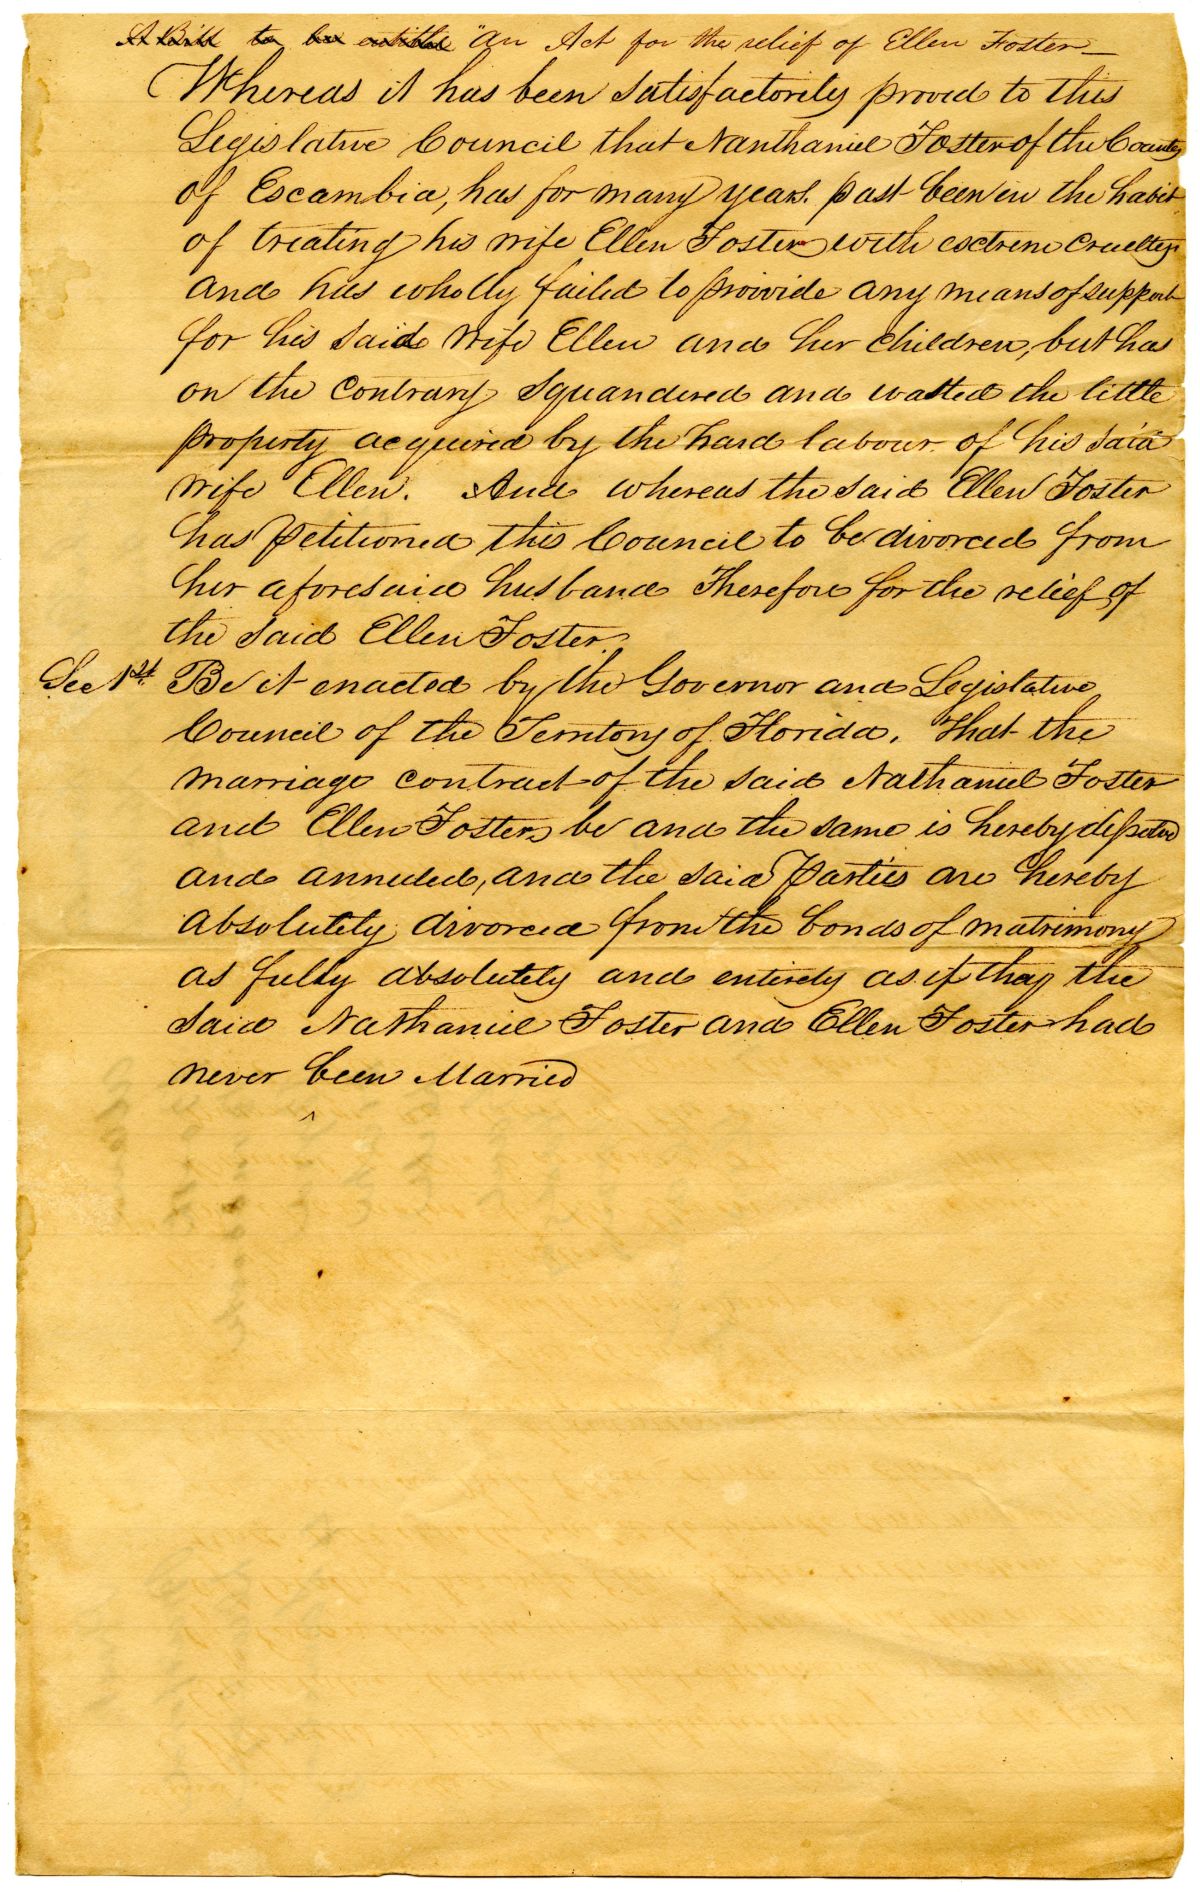 A Bill to be entitled "An Act for the relief of Ellen Foster—
Whereas it has been satisfactorily proved to this
Legislative Council that Nanthaniel Foster of the County
of Escambia, has for many years. past been in the habit
of treating his wife Ellen Foster with extrem cruelty
and has wholly failed to proivide any means of support
for his said wife Ellen and her children, but has
on the contrary squandered and wasted the little
property acquired by the hard labour of his said
wife Ellen. And whereas the said Ellen Foster
has petitioned this Council to be divorced from
her aforesaid husband Therefore for the relief of
the said Ellen Foster.
Sec 1st. Be it enacted by the Governor and Legislative
Council of the Territory of Florida. That the
marriage contract of the said Nathaniel Foster
and Ellen Foster, be and the same is hereby dissolved
and annuled, and the said Parties are hereby
absolutely divorced from the bonds of matrimony
as fully absolutely and entirely as if they the
said Nathaniel Foster and Ellen Foster had
never been Married